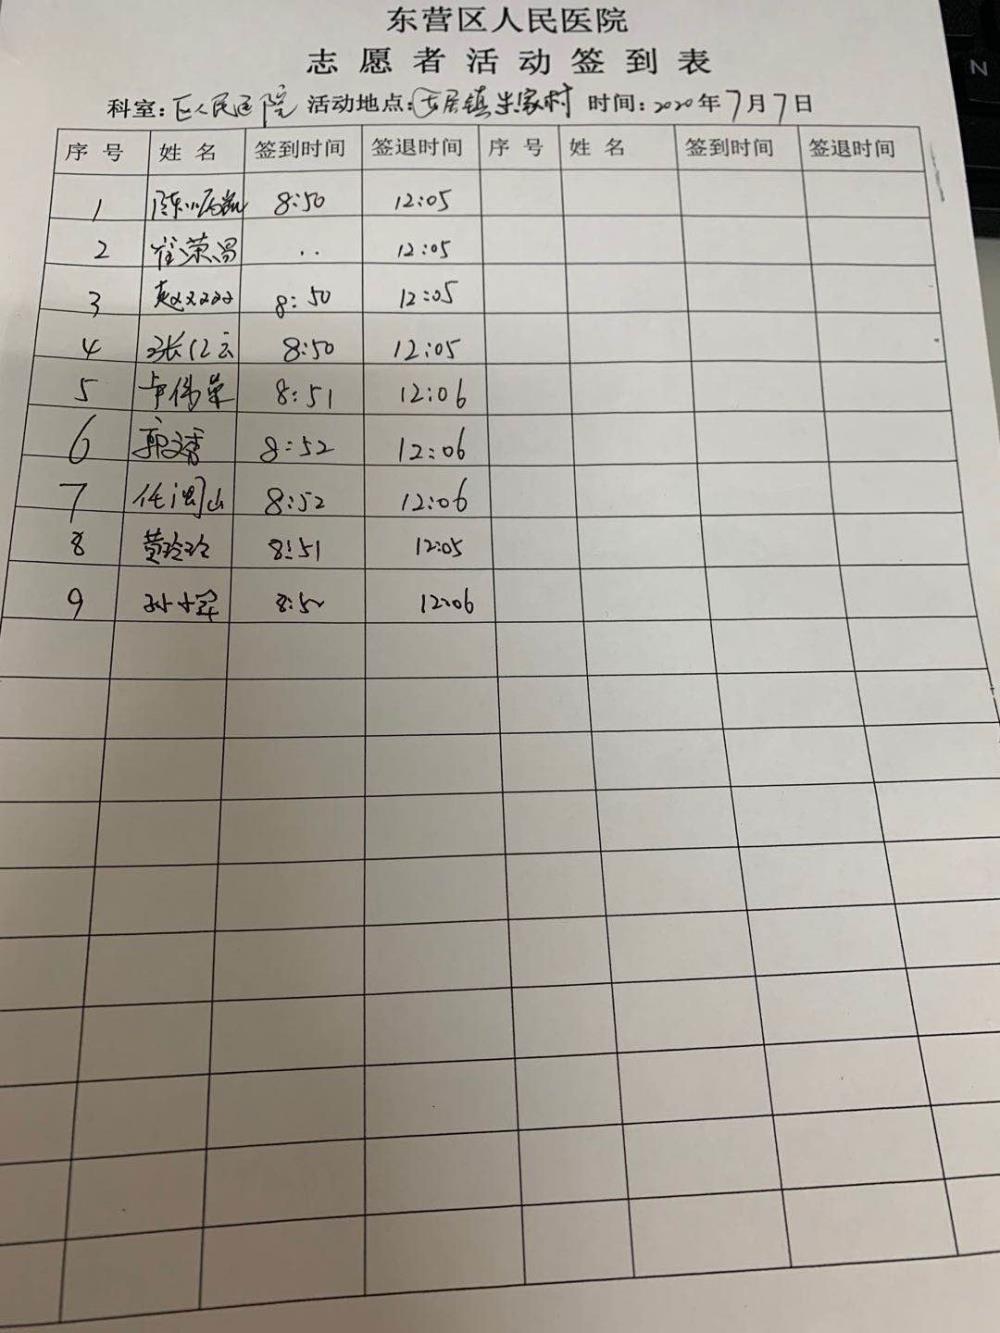 东营区人民医院
志愿者活动签到表
科室:区人民医院 活动地点:史居镇朱家村 时间:2020年7月7日
序号 姓名 签到时间 签退时间 序号 姓名 签到时间 签退时间
1 陈 8:50 12:05
2 崔荣昌 .. 12:05
3 赵双双 8:50 12:05
4 张仁云 8:50 12:05
5 伟荣 8:51 12:06
6 郭文秀 8:52 12:06
7 任洞山 8:52 12:06
8 黄玲玲 8:51 12:05
9 孙小军 8:52 12:06
N